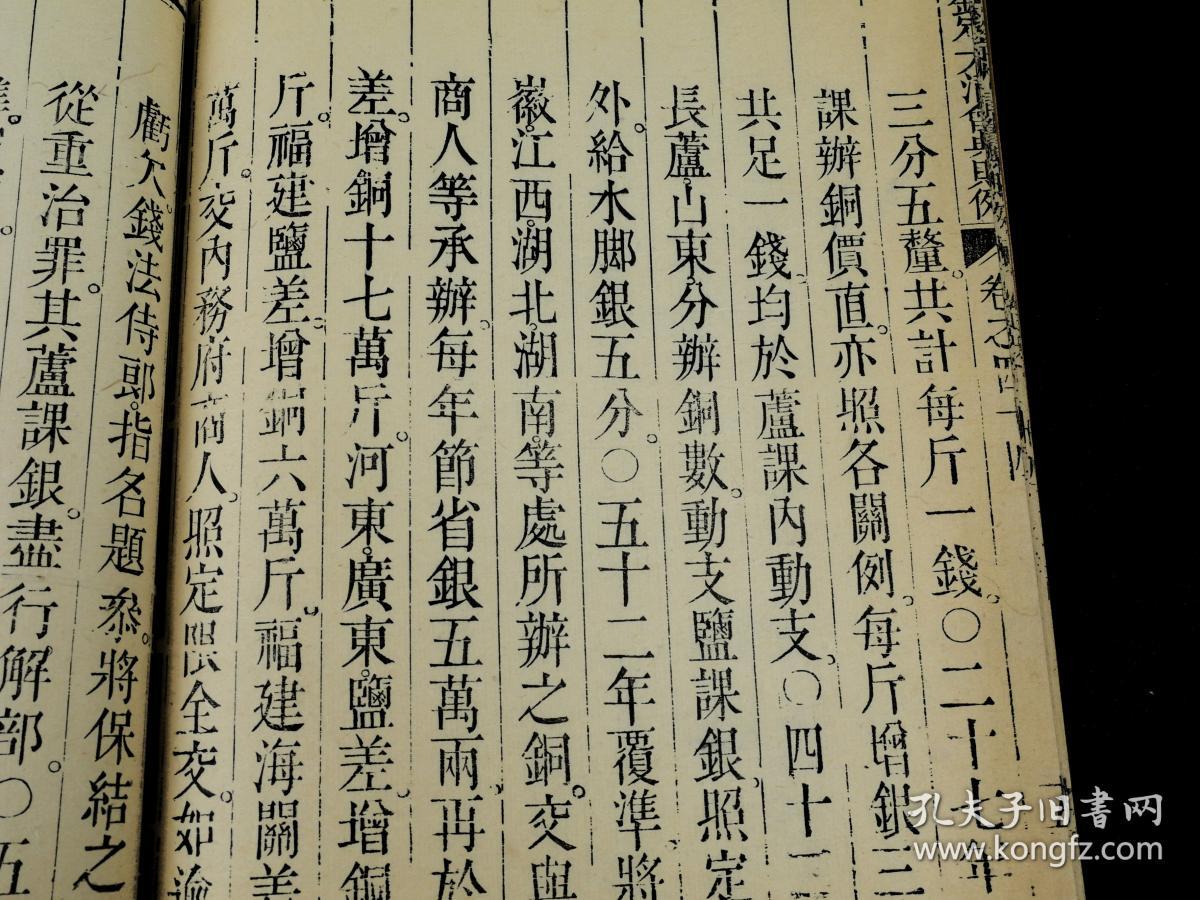 欽定大清會典則例 卷之四十四
三分五釐。共計每斤一錢。〇二十七年
課辦銅價直。亦照各關例。每斤增銀三
共足一錢。均於蘆課內動支。〇四十二
長蘆。山東。分辦銅數。動支鹽課銀。照定
外。給水脚銀五分。〇五十二年覆準。將
徽。江西。湖北。湖南。等處所辦之銅。交與
商人等承辦。每年節省銀五萬兩。再於
差。增銅十七萬斤。河東。廣東。鹽差。增銅
斤。福建鹽差。增銅六萬斤。福建海關差
萬斤。交內務府商人。照定限全交。如逾
虧欠。錢法侍郎。指名題參。將保結之
從重治罪。其蘆課銀。盡行解部。〇五
孔夫子旧书网
www.kongfz.com